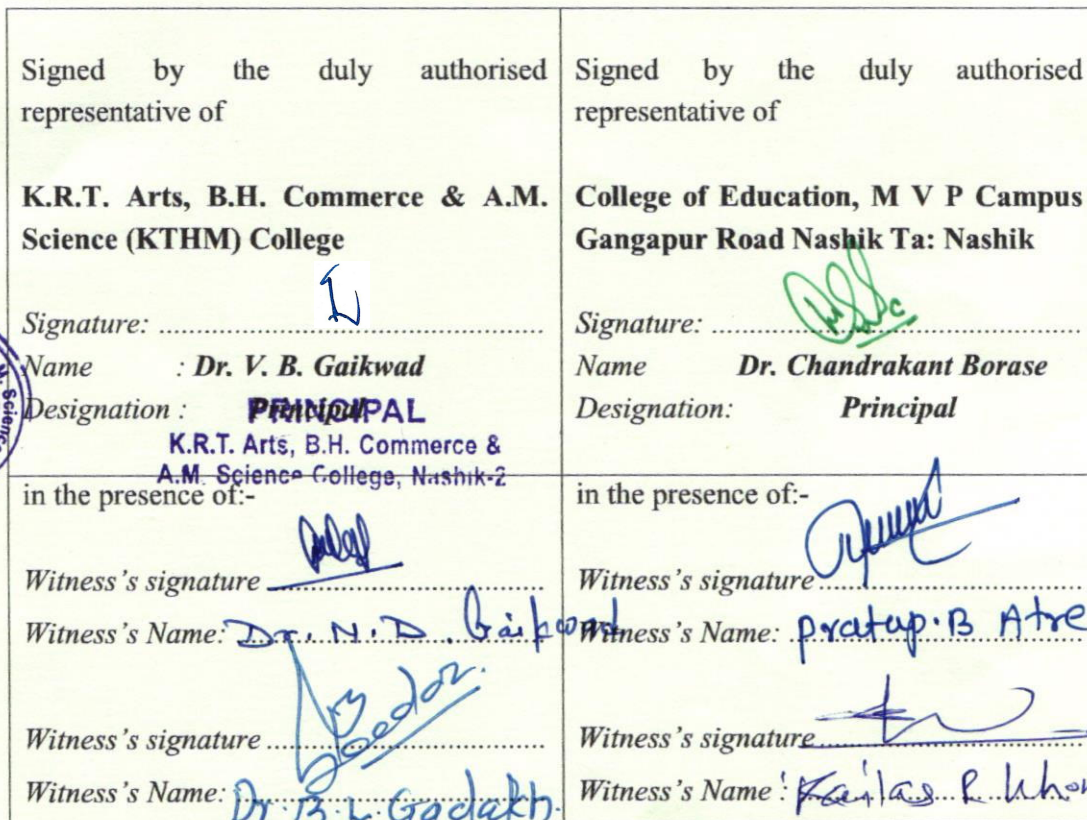 Signed by the duly authorised
representative of
K.R.T. Arts, B.H. Commerce & A.M.
Science (KTHM) College
Signature: ..........
Name : Dr. V. B. Gaikwad
Designation : Principal
PRINCIPAL
K.R.T. Arts, B.H. Commerce &
A.M. Science College, Nashik-2
M. Science
in the presence of:-
Witness's signature ..........
Witness's Name: Dr. N. D. Gaikwad
Witness's signature ..........
Witness's Name: Dr. B. L. Godakh.
Signed by the duly authorised
representative of
College of Education, M V P Campus
Gangapur Road Nashik Ta: Nashik
Signature: ..........
Name Dr. Chandrakant Borase
Designation: Principal
in the presence of:-
Witness's signature ..........
Witness's Name: Pratap.B Atre
Witness's signature ..........
Witness's Name : Kailas R